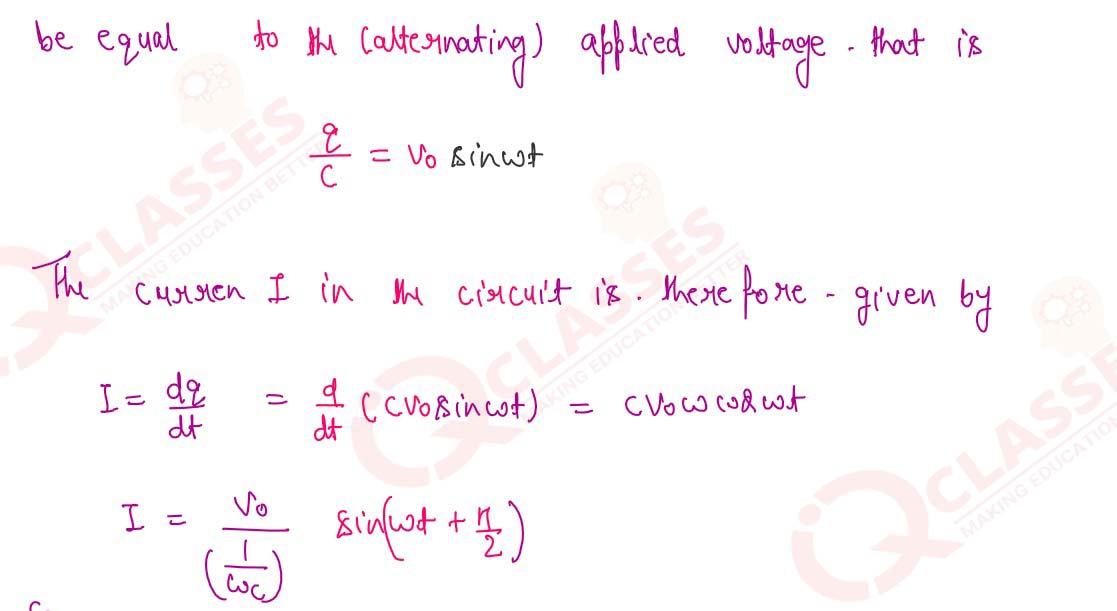 be equal to the (alternating) applied voltage. that is
q/C = V₀ sinωt
The curren I in the circuit is. therefore - given by
I = dq/dt = d/dt (CV₀sinωt) = CV₀ω cosωt
I = V₀/(1/ωC) sin(ωt + π/2)
CLASSES
MAKING EDUCATION BETTER
CLASSES
MAKING EDUCATION BETTER
CLASSES
MAKING EDUCATION